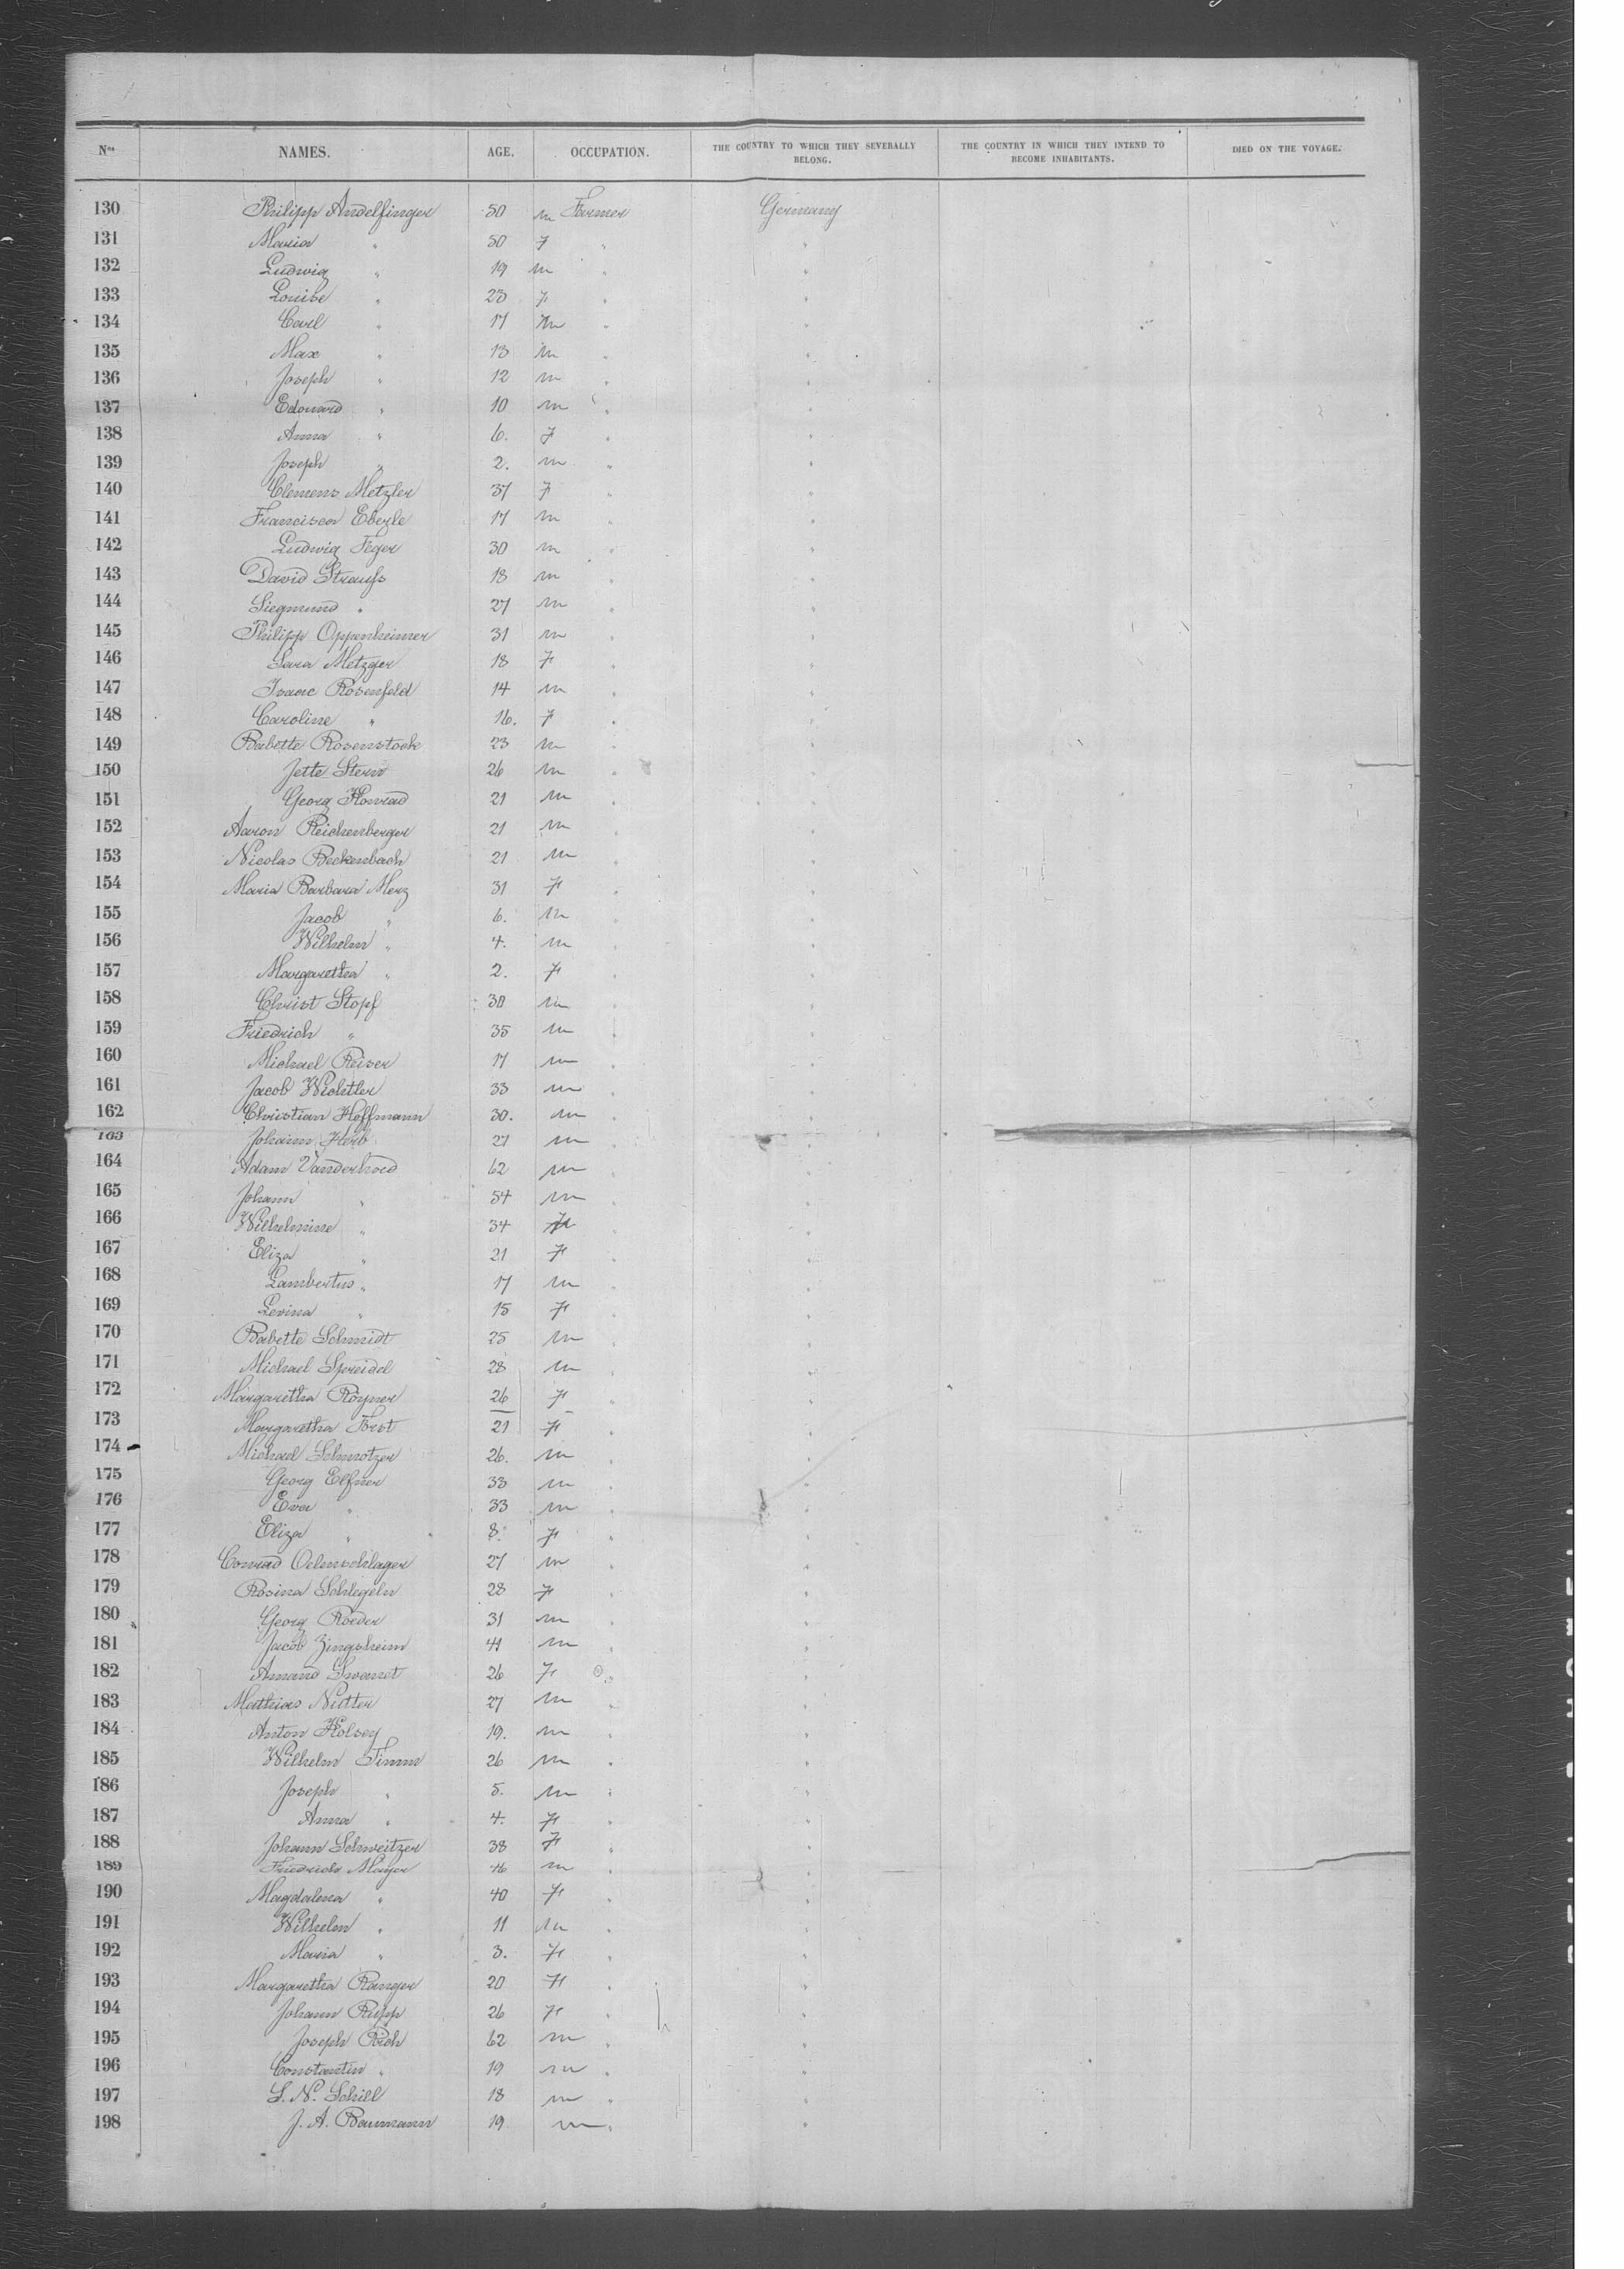 Nos NAMES. AGE. OCCUPATION. THE COUNTRY TO WHICH THEY SEVERALLY BELONG. THE COUNTRY IN WHICH THEY INTEND TO BECOME INHABITANTS. DIED ON THE VOYAGE.
130 Philipp Andelfinger 50 m Farmer Germany
131 Maria " 50 f " "
132 Ludwig " 19 m " "
133 Louise " 23 f " "
134 Carl " 17 m " "
135 Max " 13 m " "
136 Joseph " 12 m " "
137 Edouard " 10 m " "
138 Anna " 6. f " "
139 Joseph " 2. m " "
140 Clemens Metzler 37 f " "
141 Francisca Eberle 17 m " "
142 Ludwig Feger 30 m " "
143 David Strauss 18 m " "
144 Siegmund " 27 m " "
145 Philipp Oppenheimer 31 m " "
146 Sara Metzger 18 f " "
147 Isaac Rosenfeld 14 m " "
148 Caroline " 16. f " "
149 Babette Rosenstock 23 m " "
150 Jette Stern 26 m " "
151 Georg Konrad 21 m " "
152 Aaron Reichenberger 21 m " "
153 Nicolas Beckenbach 21 m " "
154 Maria Barbara Merz 31 f " "
155 Jacob " 6. m " "
156 Wilhelm " 4. m " "
157 Margaretha " 2. f " "
158 Christ Stopf 30 m " "
159 Friedrich " 35 m " "
160 Michael Reiser 17 m " "
161 Jacob Wichtler 33 m " "
162 Christian Hoffmann 30. m " "
163 Johann Herb 27 m " "
164 Adam 62 m " "
165 Johann " 54 m " "
166 Wilhelmine " 34 f " "
167 Eliza " 21 f " "
168 Lambertus " 17 m " "
169 Levina " 15 f " "
170 Babette Schmidt 25 m " "
171 Michael Speidel 28 m " "
172 Margaretha 26 f " "
173 Margaretha Forst 21 f " "
174 Michael Schmotzer 26. m " "
175 Georg Elfner 33 m " "
176 Eva " 33 m " "
177 Eliza " 8. f " "
178 Conrad Oelenschlager 27 m " "
179 Rosina Schlegeln 28 f " "
180 Georg Roeder 31 m " "
181 Jacob Zingsheim 41 m " "
182 Amand 26 f " "
183 Mathias Nutter 27 m " "
184 Anton Holsey 19. m " "
185 Wilhelm Timm 26 m " "
186 Joseph " 5. m " "
187 Anna " 4. f " "
188 Johann Schweitzer 38 f " "
189 Friedrich Mayer 46 m " "
190 Magdalena " 40 f " "
191 Wilhelm " 11 m " "
192 Maria " 3. f " "
193 Margaretha Ranger 20 f " "
194 Johann Rupp 26 f " "
195 Joseph Rich 62 m " "
196 Constantin " 19 m " "
197 S. N. Schill 18 m " "
198 J. A. Baumann 19 m " "